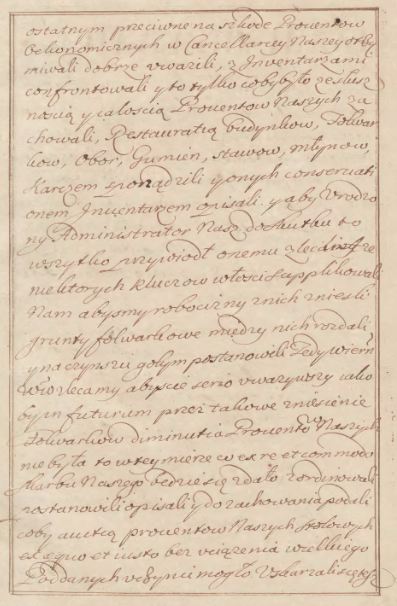 ostatnym przeciwne na szkodę Prowentow
oekonomicznych w Cancellaryey Naszey otrzy
miwali dobrze uwazili, z Inventarzami
confrontowali y to tylko coby było ze słusz
nością y całoscią Prowentow Naszych za
chowali, Restauratią budynkow, Folwar
kow, Obor, Gumien, stawow, młynow,
Karczem sporządzili y onych conservati
onem Inventarzem opisali. y aby Urodzo
ny Administrator Nasz do skutku to
wszytko przywiodł onemu zlecili
niektorych kluczow włości supplikowali
Nam abysmy robocizny z nich zniesli
grunty folwarkowe między nich rozdali
y na czynszu gołym postanowili Tedy Wiern
Wm zlecamy abyscie serio uwazywszy iako
by in futurum przez takowe zniesienie
Folwarkow diminutia Prowentow Naszych
nie była to w tey mierze co ex re et commodo
skarbu Naszego będzie się zdało zordinowali
postanowili opisali y do zachowania podali
coby auctą prowentow Naszych stołowych
ex æquo et iusto bez uciązenia wielkiego
Poddanych uczynic mogło Uskarzali się tesz